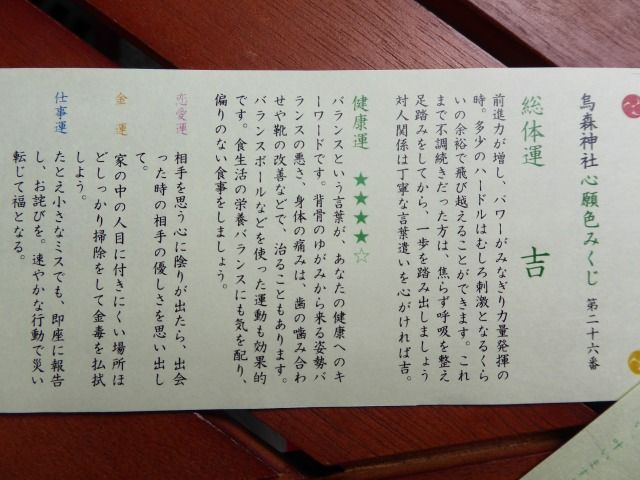 烏森神社心願色みくじ 第二十六番
総体運 吉
前進力が増し、パワーがみなぎり力量発揮の
時。多少のハードルはむしろ刺激となるくら
いの余裕で飛び越えることができます。これ
まで不調続きだった方は、焦らず呼吸を整え
足踏みをしてから、一歩を踏み出しましょう
対人関係は丁寧な言葉遣いを心がければ吉。
健康運 ★★★★☆
バランスという言葉が、あなたの健康へのキ
ーワードです。背骨のゆがみから来る姿勢バ
ランスの悪さ、身体の痛みは、歯の噛み合わ
せや靴の改善などで、治ることもあります。
バランスボールなどを使った運動も効果的
です。食生活の栄養バランスにも気を配り、
偏りのない食事をしましょう。
恋愛運 相手を思う心に陰りが出たら、出会
った時の相手の優しさを思い出し
て。
金運 家の中の人目に付きにくい場所ほ
どしっかり掃除をして金毒を払拭
しよう。
仕事運 たとえ小さなミスでも、即座に報告
し、お詫びを。速やかな行動で災い
転じて福となる。